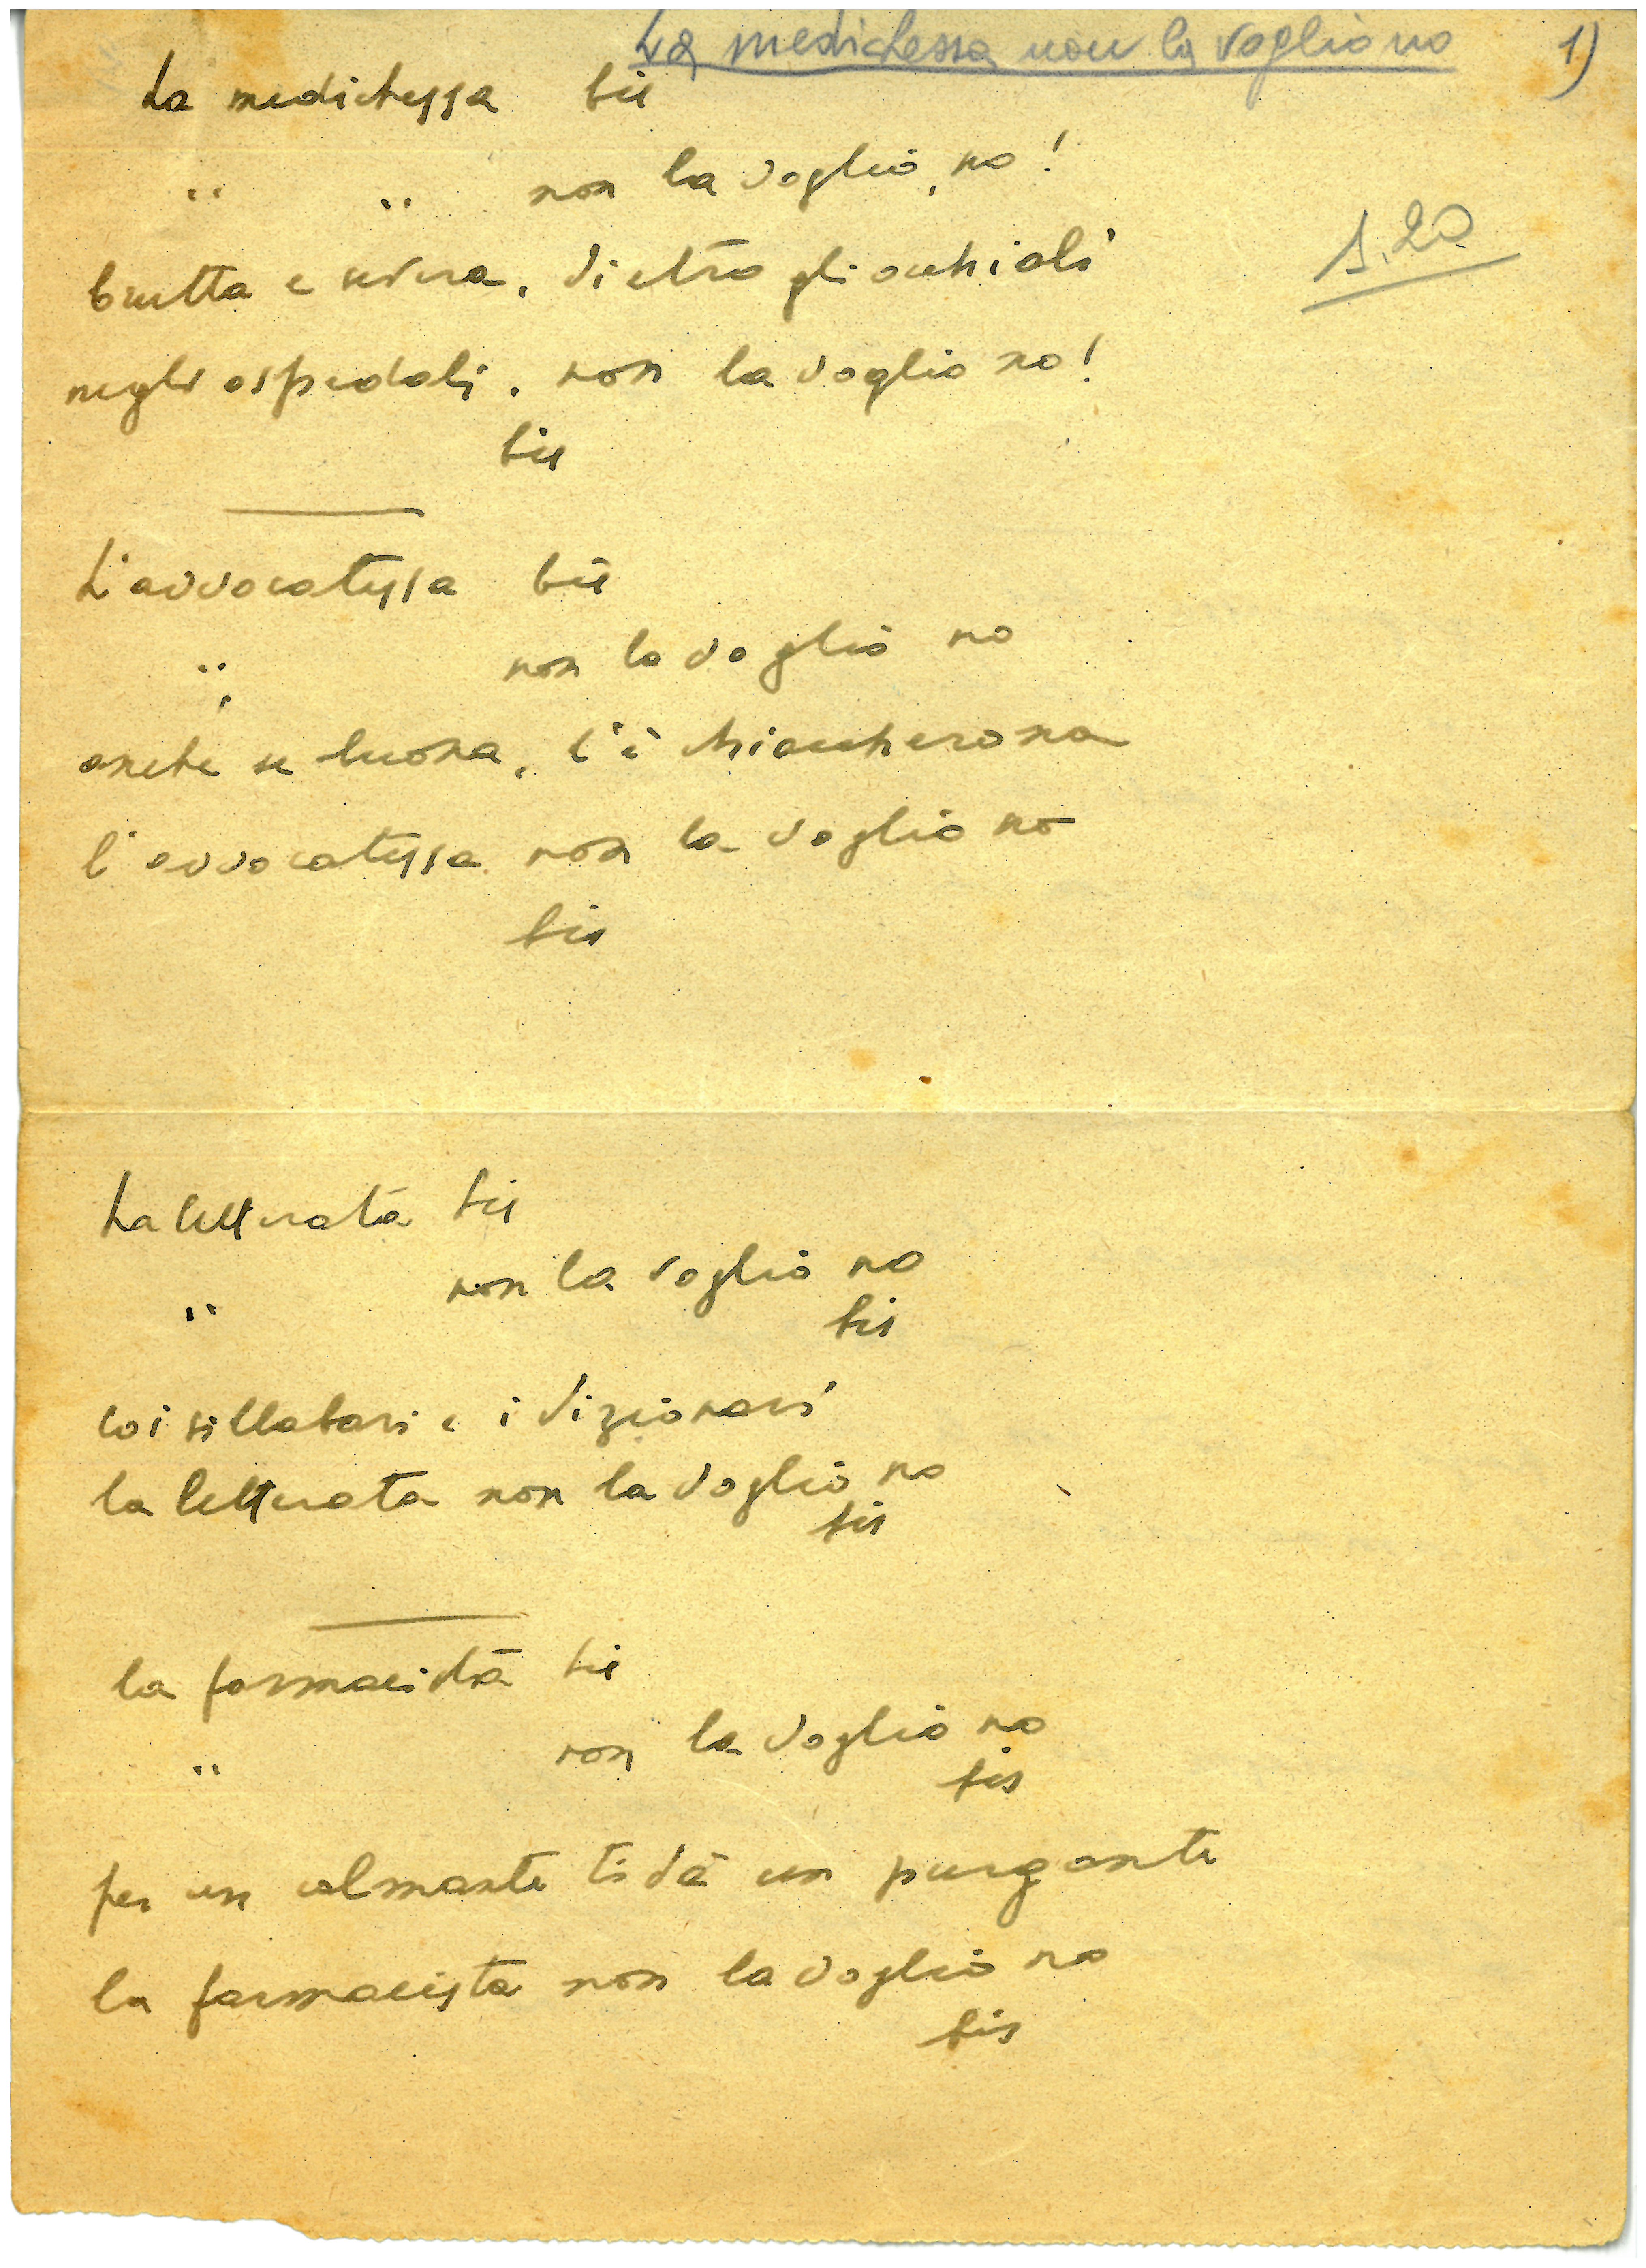 La medichessa non la voglio no 1)
La medichessa bis
" " non la voglio, no!
1,20
brutta e severa, dietro gli occhiali
negli ospedali, non la voglio no!
bis
L'avvocatessa bis
" non la voglio no
anche se buona, l'è chiaccherona
l'avvocatessa non la voglio no
bis
La letterata bis
" non la voglio no
bis
coi sillabari e i dizionari
la letterata non la voglio no
bis
la farmacista bis
" non la voglio no
bis
per un calmante ti dà un purgante
la farmacista non la voglio no
bis